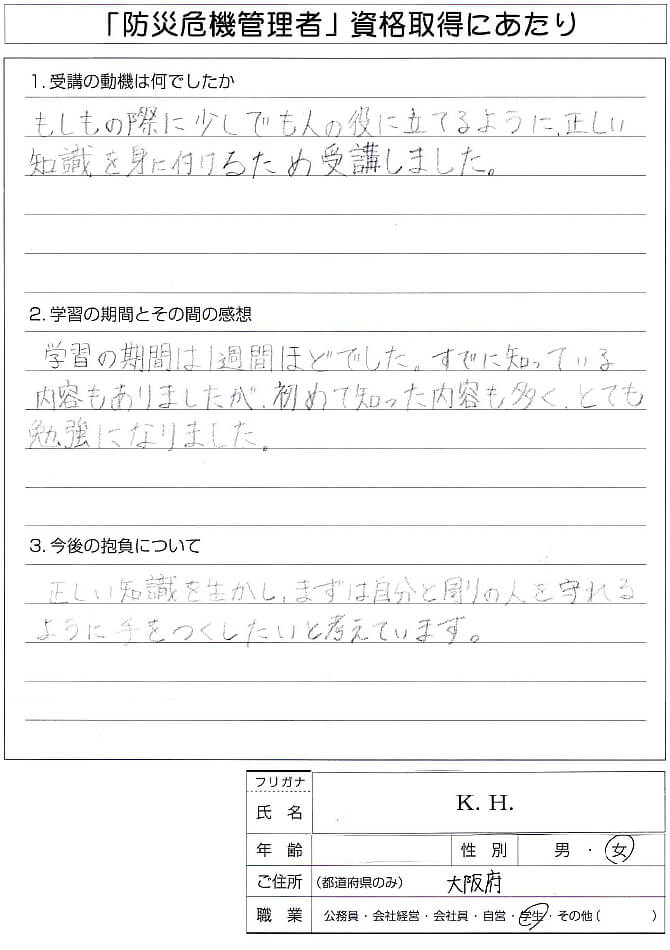 「防災危機管理者」資格取得にあたり
1. 受講の動機は何でしたか
もしもの際に少しでも人の役に立てるように、正しい
知識を身に付けるため受講しました。
2. 学習の期間とその間の感想
学習の期間は1週間ほどでした。すでに知っている
内容もありましたが、初めて知った内容も多く、とても
勉強になりました。
3. 今後の抱負について
正しい知識を生かし、まずは自分と周りの人を守れる
ように手をつくしたいと考えています。
フリガナ
氏 名 K. H.
年 齢 性 別 男 ・ 女
ご住所 (都道府県のみ) 大阪府
職 業 公務員・会社経営・会社員・自営・学生・その他( )